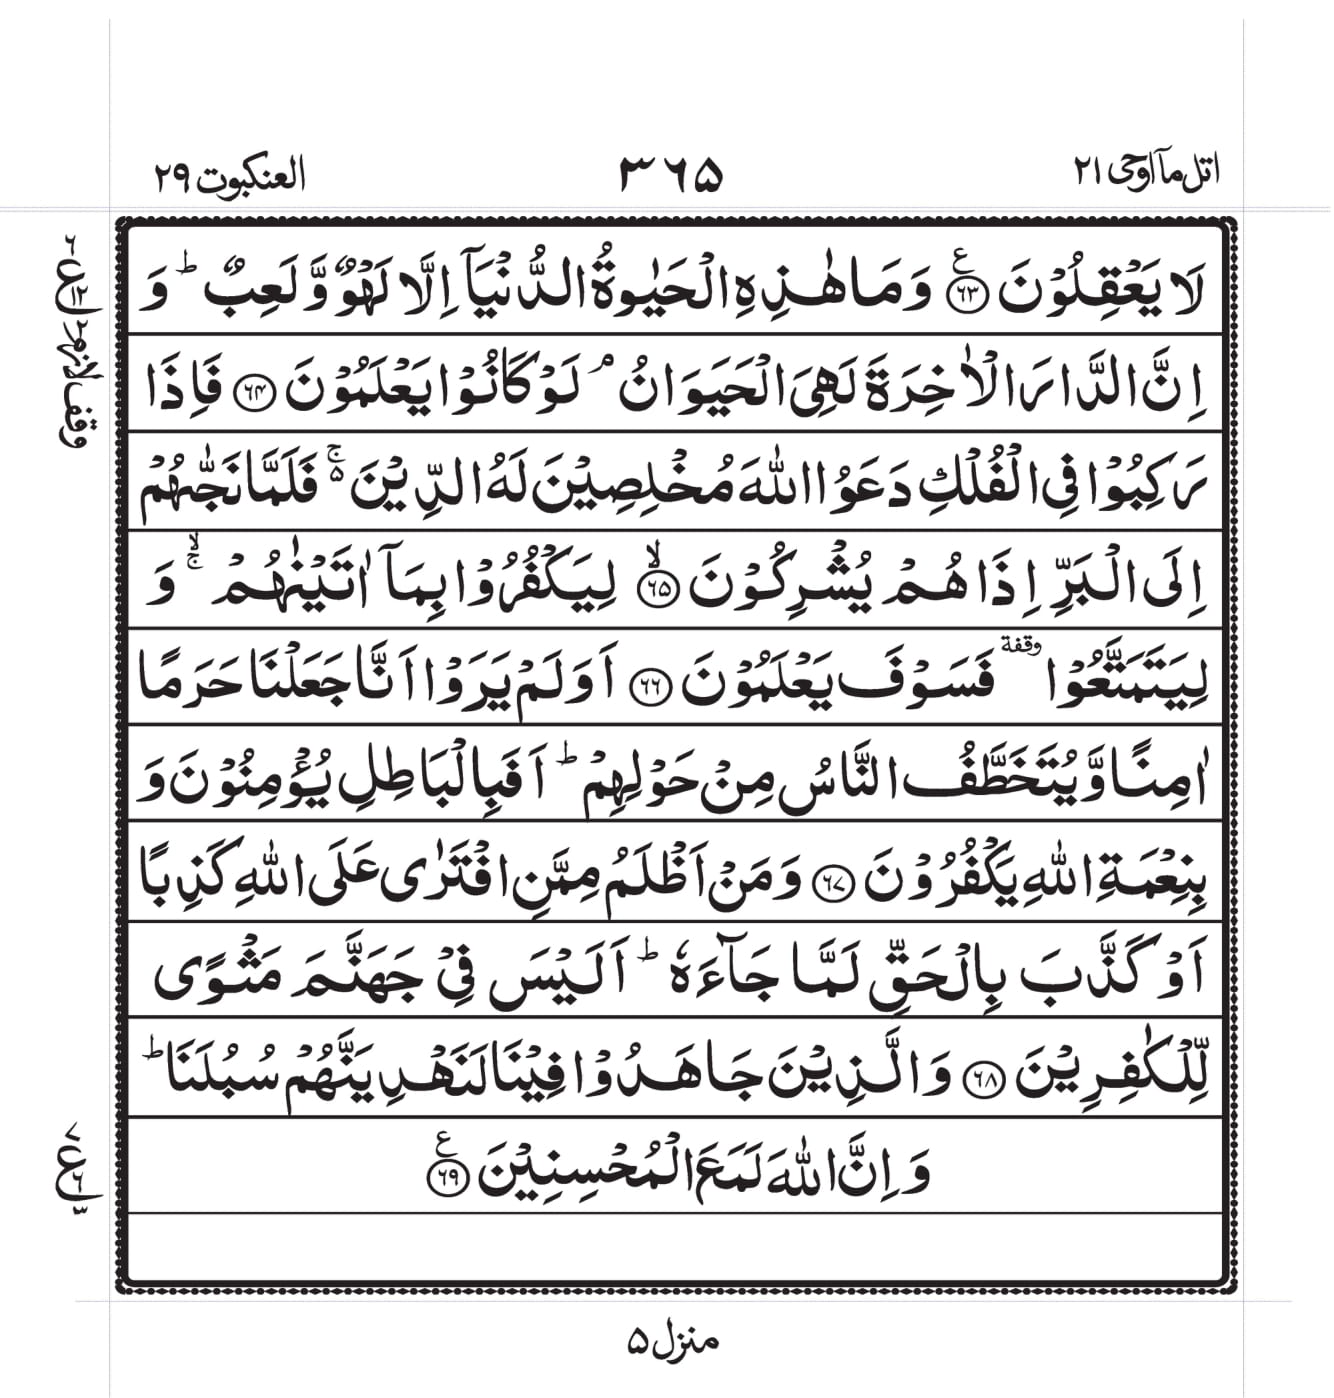 اتل مآ اوحی ۲۱ ۳۶۵ العنكبوت ۲۹
لَا يَعْقِلُوْنَ ﴿۶۳﴾ ع وَمَا هٰذِهِ الْحَيٰوةُ الدُّنْيَآ اِلَّا لَهْوٌ وَّلَعِبٌ ؕ وَ
اِنَّ الدَّارَ الْاٰخِرَةَ لَهِيَ الْحَيَوَانُ ۘ لَوْ كَانُوْا يَعْلَمُوْنَ ﴿۶۴﴾ فَاِذَا
رَكِبُوْا فِي الْفُلْكِ دَعَوُا اللّٰهَ مُخْلِصِيْنَ لَهُ الدِّيْنَ ۚ۬ فَلَمَّا نَجّٰىهُمْ
اِلَى الْبَرِّ اِذَا هُمْ يُشْرِكُوْنَ ﴿۶۵﴾ ۙ لِيَكْفُرُوْا بِمَآ اٰتَيْنٰهُمْ ۚۙ وَ
لِيَتَمَتَّعُوْا وقفة فَسَوْفَ يَعْلَمُوْنَ ﴿۶۶﴾ اَوَلَمْ يَرَوْا اَنَّا جَعَلْنَا حَرَمًا
اٰمِنًا وَّيُتَخَطَّفُ النَّاسُ مِنْ حَوْلِهِمْ ؕ اَفَبِالْبَاطِلِ يُؤْمِنُوْنَ وَ
بِنِعْمَةِ اللّٰهِ يَكْفُرُوْنَ ﴿۶۷﴾ وَمَنْ اَظْلَمُ مِمَّنِ افْتَرٰى عَلَى اللّٰهِ كَذِبًا
اَوْ كَذَّبَ بِالْحَقِّ لَمَّا جَآءَهٗ ؕ اَلَيْسَ فِيْ جَهَنَّمَ مَثْوًى
لِّلْكٰفِرِيْنَ ﴿۶۸﴾ وَالَّذِيْنَ جَاهَدُوْا فِيْنَا لَنَهْدِيَنَّهُمْ سُبُلَنَا ؕ
وَاِنَّ اللّٰهَ لَمَعَ الْمُحْسِنِيْنَ ﴿۶۹﴾ ع
۶ ع ۱۲ ۲
وقف لازم
۷ ع ۶ ۳
منزل ۵